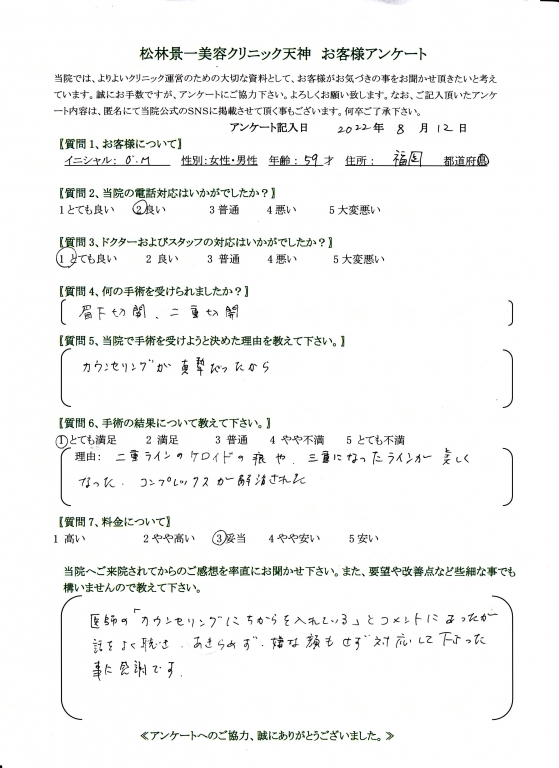 松林景一美容クリニック天神　お客様アンケート
当院では、よりよいクリニック運営のための大切な資料として、お客様がお気づきの事をお聞かせ頂きたいと考え
ています。誠にお手数ですが、アンケートにご協力下さい。よろしくお願い致します。なお、ご記入頂いたアンケ
ート内容は、匿名にて当院公式のSNSに掲載させて頂く事もございます。何卒ご了承下さい。
アンケート記入日　2022年 8 月 12 日
【質問1、お客様について】
イニシャル: O.M　性別:女性・男性　年齢: 59才　住所: 福岡　都道府県
【質問2、当院の電話対応はいかがでしたか?】
1とても良い　2良い　3 普通　4悪い　5大変悪い
【質問3、ドクターおよびスタッフの対応はいかがでしたか?】
1 とても良い　2 良い　3 普通　4悪い　5大変悪い
【質問4、何の手術を受けられましたか?】
眉下切開、二重切開
【質問5、当院で手術を受けようと決めた理由を教えて下さい。】
カウンセリングが真摯だったから
【質問6、手術の結果について教えて下さい。】
1とても満足　2 満足　3 普通　4 やや不満　5 とても不満
理由: 二重ラインのケロイドの痕や、三重になったラインが美しく
なった。コンプレックスが解消された
【質問7、料金について】
1 高い　2やや高い　3妥当　4やや安い　5安い
当院へご来院されてからのご感想を率直にお聞かせ下さい。また、要望や改善点など些細な事でも
構いませんので教えて下さい。
医師の「カウンセリングにちからを入れている」とコメントにあったが
話をよく聴き、あきらめず、嫌な顔もせず対応して下さった
事に感謝です。
≪アンケートへのご協力、誠にありがとうございました。≫